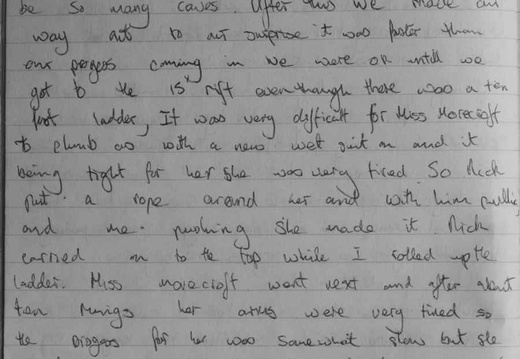 be so many caves. After this we made our
way out to our surprise it was faster than
our progess coming in we were ok untill we
got to the 15' rift eventhough there was a ten
foot ladder, It was very difficult for Miss Morecroft
to climb as with a new wet suit on and it
being tight for her she was very tired. So Rick
put a rope around her and with him pulling
and me pushing she made it Rick
carried on to the top while I rolled up the
ladder. Miss morecroft went next and after about
ten rungs her arms were very tired so
the progess for her was somewhat slow but she